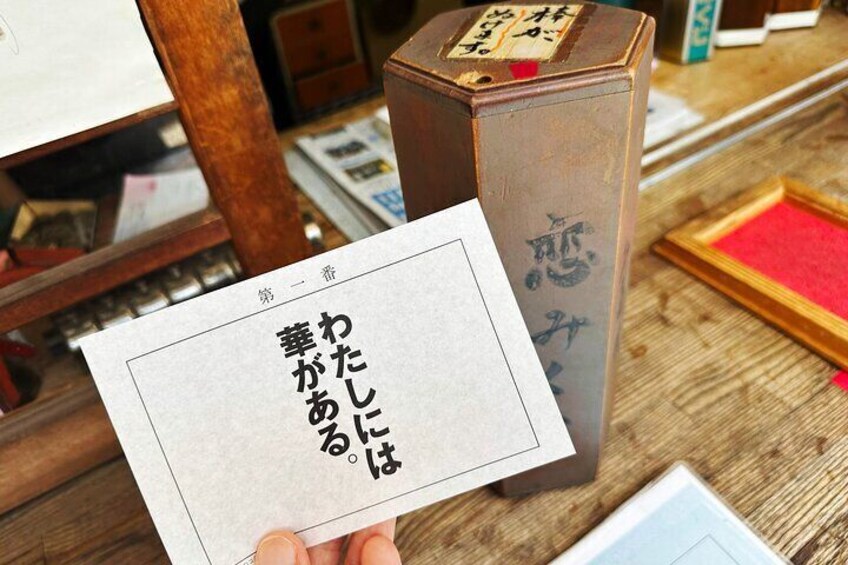 第一番
わたしには
華がある。
棒が
ぬけます。
恋みく